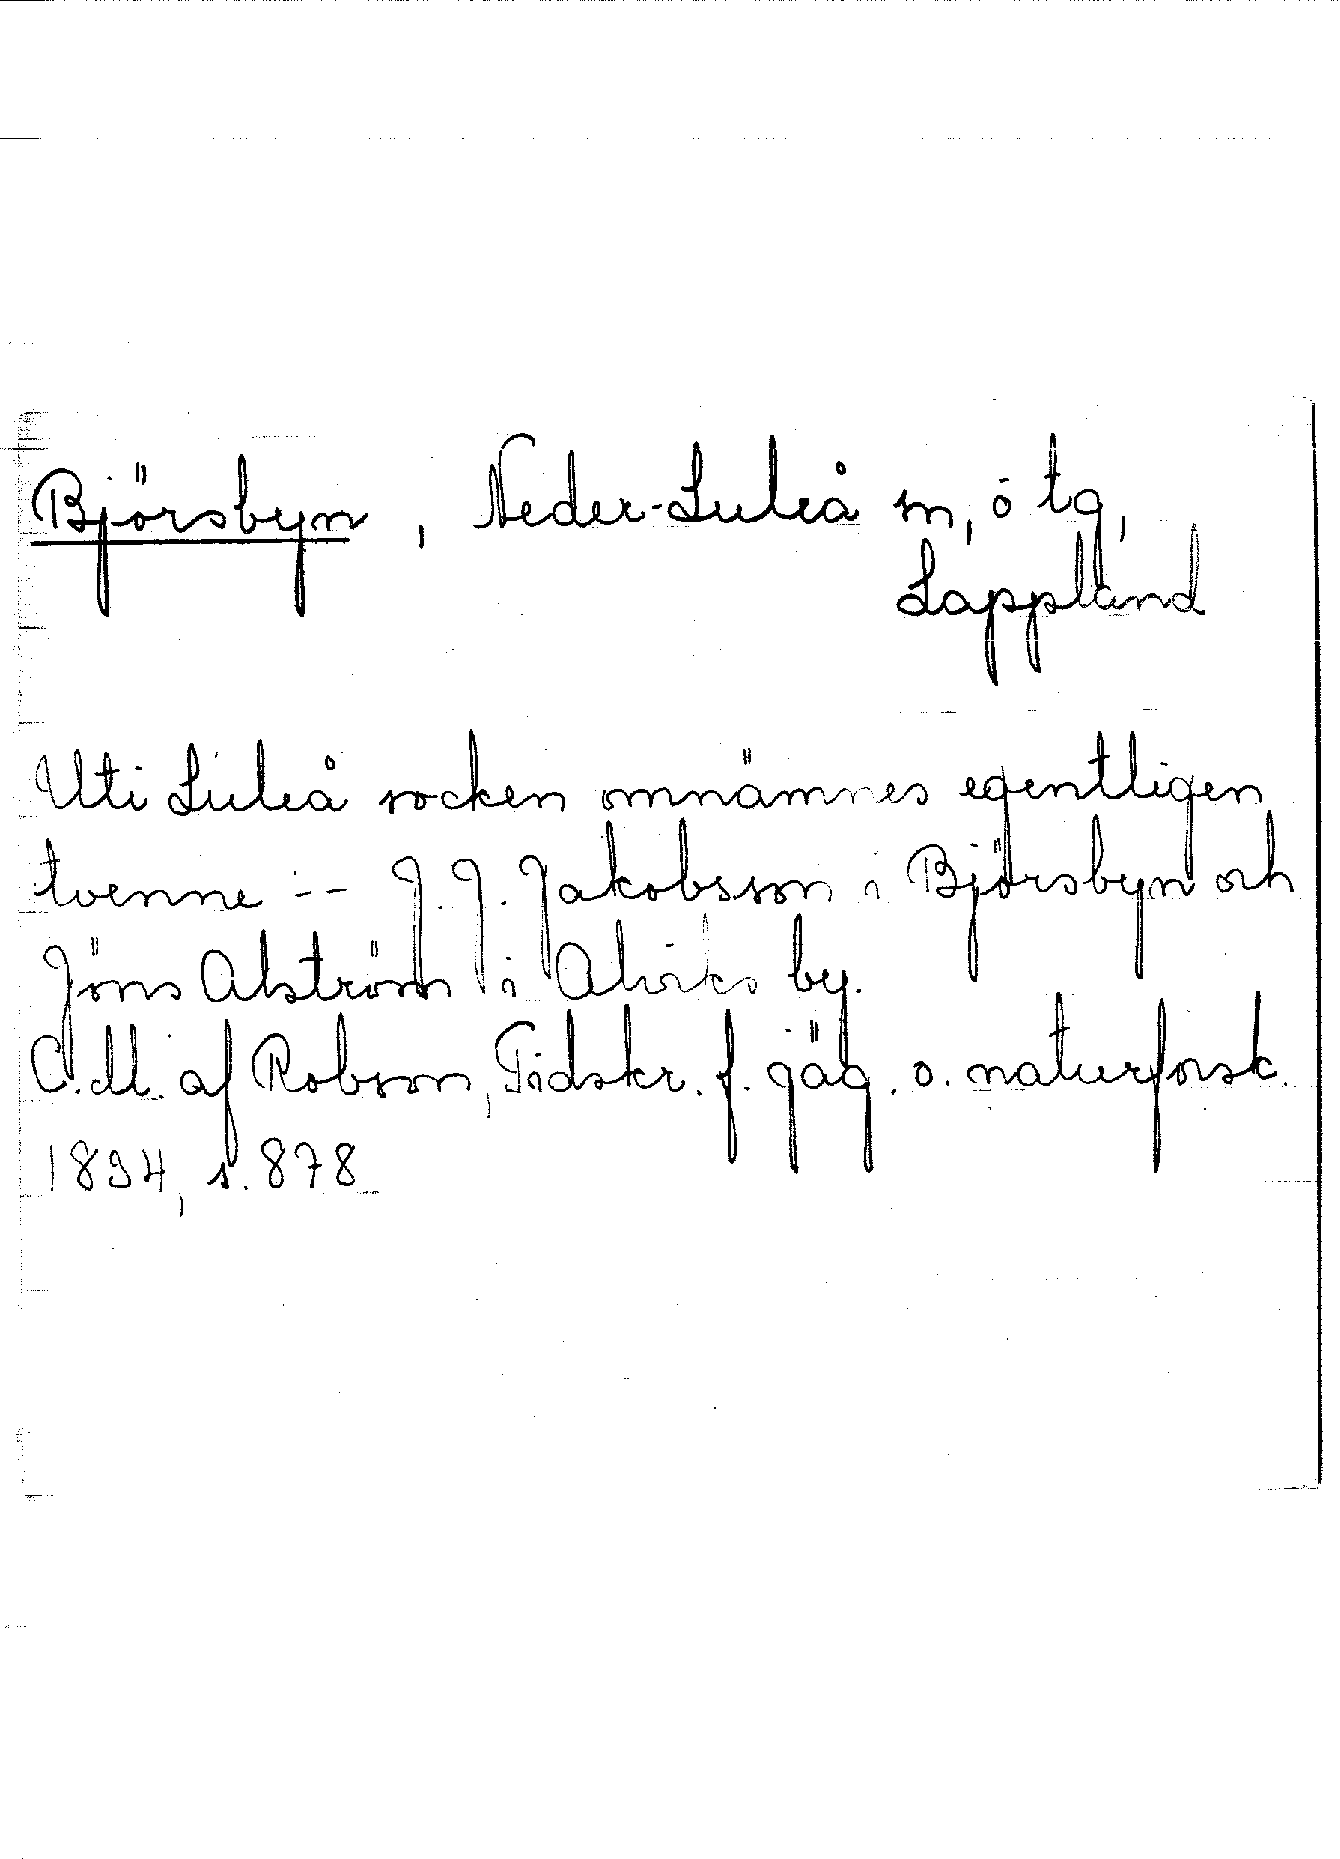 Björsbyn, Neder-Luleå sn, ö tg,
Lappland
Uti Luleå socken omnämnes egentligen
tvenne -- J. J. Jakobsson i Björsbyn och
Jöns Alström i Alviks by.
C. M. af Robson, Tidskr. f. jäg. o. naturforsk.
1834, s. 878